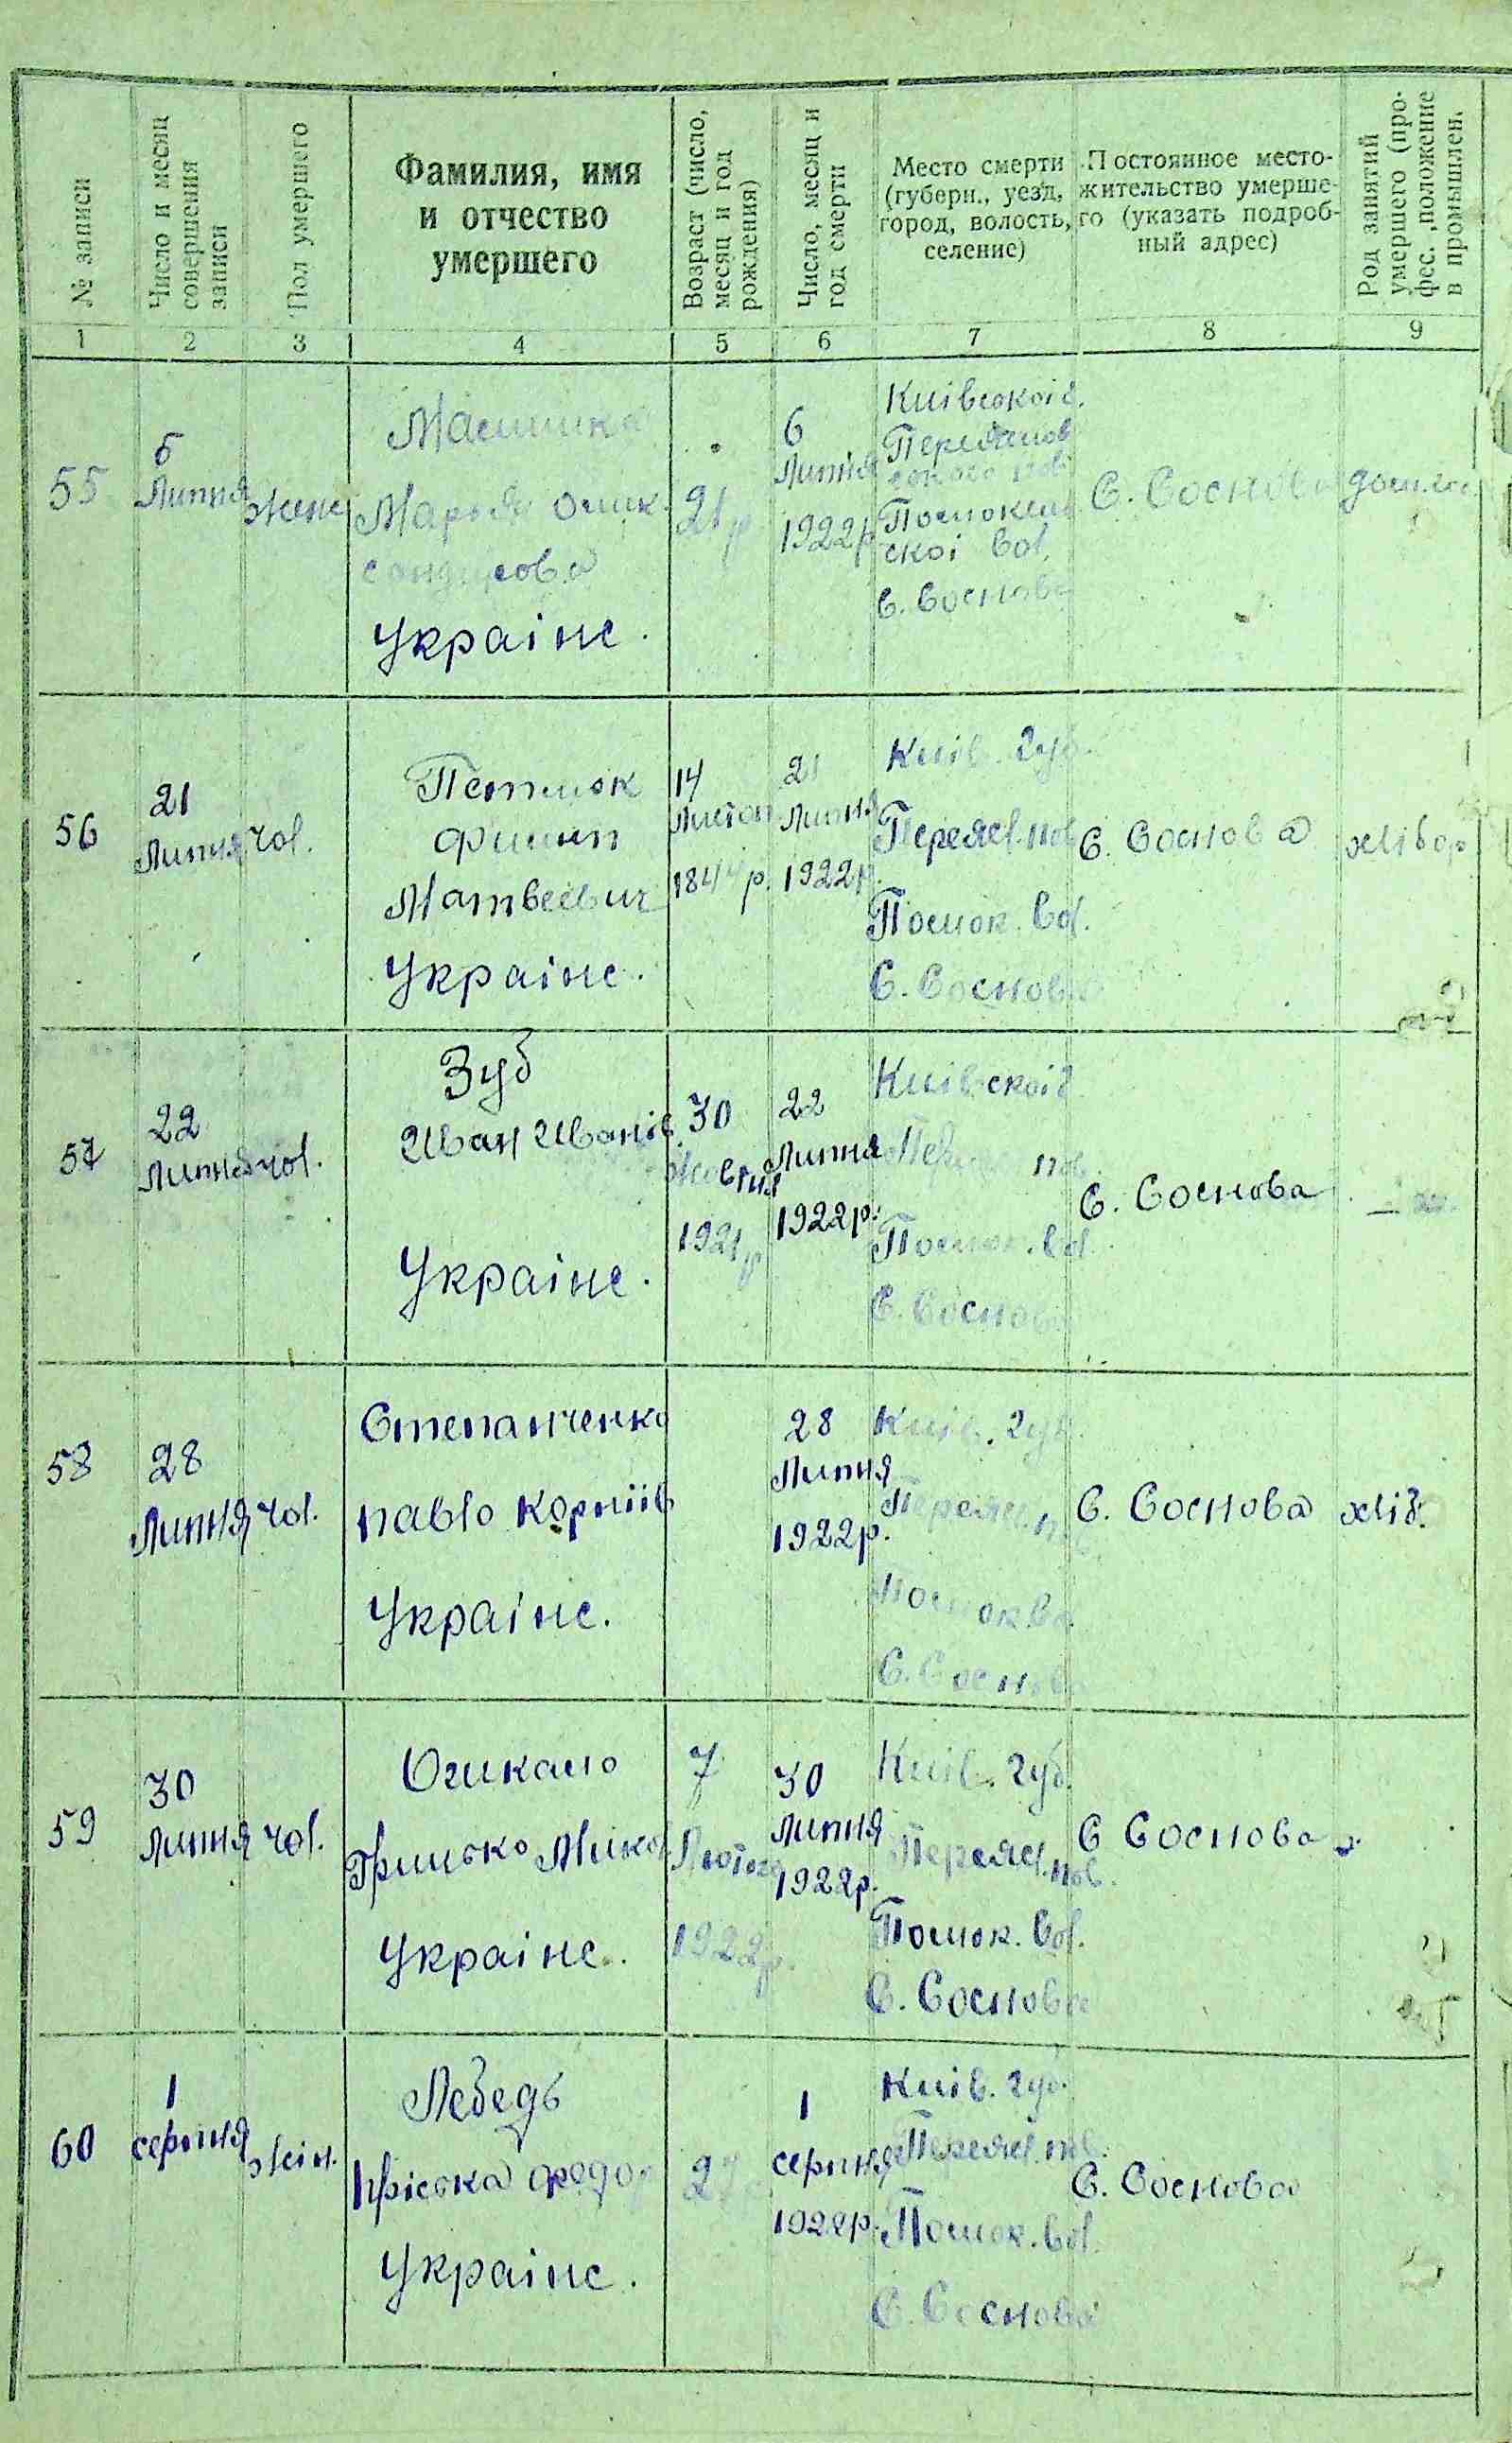 № записи
Число и месяц
совершения
записи
Пол умершего
Фамилия, имя
и отчество
умершего
Возраст (число,
месяц и год
рождения)
Число, месяц и
год смерти
Место смерти
(губерн., уезд,
город, волость,
селение)
Постоянное место-
жительство умерше-
го (указать подроб-
ный адрес)
Род занятий
умершего (про-
фес., положение
в промышлен.
1 2 3 4 5 6 7 8 9
55
Липня
21 р
6
Липня
1922р
Київської г.
скої вол.
С. Соснова
С. Соснова
Українс.
56
21
Липня
чол.
Филип
Матвеевич
Українс.
14
Листоп
21
Липня
1922р.
Київ. губ.
Переясл. пов
Помок. вол.
С. Соснова
С. Соснова
хлібор
57
22
Липня
чол.
Зуб
Иван Иванів.
Українс.
30
Жовтня
1921р
22
Липня
1922р.
Київскої г
пов.
Помок. вол.
С. Соснова
С. Соснова
58
28
Липня
чол.
Степанченко
Павло Корніів
Українс.
28
Липня
1922р.
Київ. губ.
Переясл. п
С. Соснова
С. Соснова
хліб.
59
30
Липня
чол.
Грицько Микол
Українс.
7
Лютого
1922р.
30
Липня
1922р.
Київ. губ.
Переясл. пов.
Помок. вол.
С. Соснова
С Соснова
60
1
серпня
жін.
Лебедь
Пріська Федор
Українс.
1
серпня
1922р.
Київ. губ.
Переясл. пов.
Помок. вол.
С. Соснова
С. Соснова